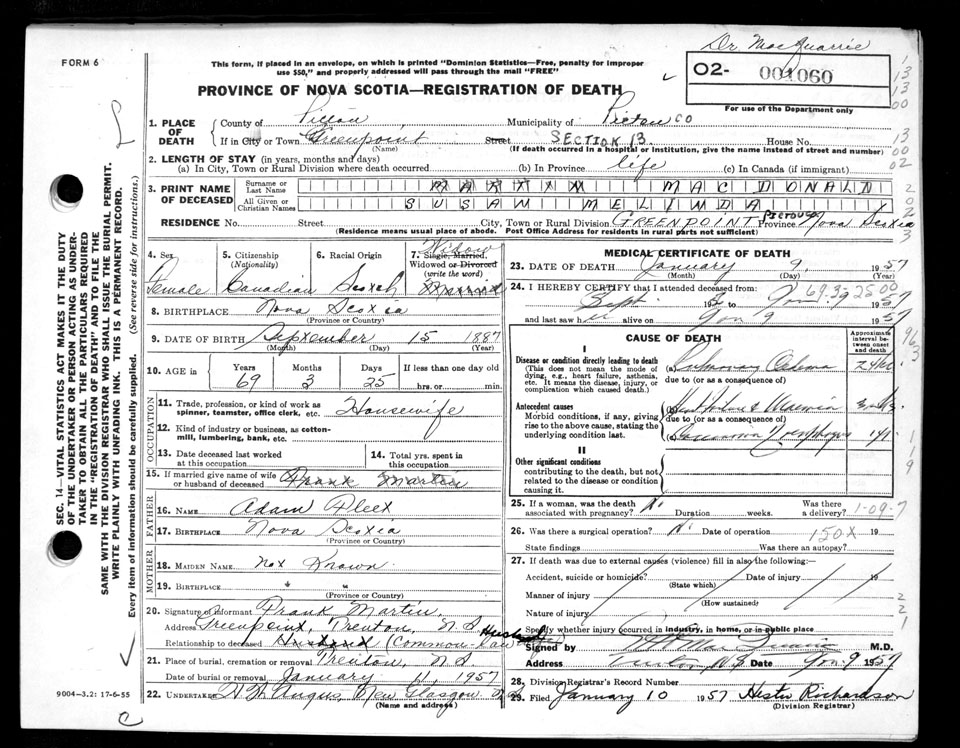 Dr. MacQuarrie
FORM 6
This form, if placed in an envelope, on which is printed "Dominion Statistics—Free, penalty for improper
use $50," and properly addressed will pass through the mail "FREE"
02- 001060
For use of the Department only
PROVINCE OF NOVA SCOTIA—REGISTRATION OF DEATH
1. PLACE OF DEATH
County of Pictou Municipality of Pictou Co
If in City or Town Greenpoint Street SECTION 13. House No.
(Name) (If death occurred in a hospital or institution, give the name instead of street and number)
2. LENGTH OF STAY (in years, months and days)
(a) In City, Town or Rural Division where death occurred (b) In Province life (c) In Canada (if immigrant)
3. PRINT NAME OF DECEASED
Surname or Last Name MARTIN MAC DONALD
All Given or Christian Names SUSAN MELINDA
RESIDENCE No. Street City, Town or Rural Division GREENPOINT Pictou Co Province Nova Scotia
(Residence means usual place of abode. Post Office Address for residents in rural parts not sufficient)
4. Sex Female
5. Citizenship (Nationality) Canadian
6. Racial Origin Scotch
7. Single, Married, Widowed or Divorced (write the word) Widow Married
8. BIRTHPLACE Nova Scotia
(Province or Country)
9. DATE OF BIRTH September 15 1887
(Month) (Day) (Year)
10. AGE in Years 69 Months 3 Days 25 If less than one day old
hrs. or min.
OCCUPATION
11. Trade, profession, or kind of work as spinner, teamster, office clerk, etc. Housewife
12. Kind of industry or business, as cotton-mill, lumbering, bank, etc.
13. Date deceased last worked at this occupation
14. Total yrs. spent in this occupation
15. If married give name of wife or husband of deceased Frank Martin
FATHER
16. NAME Adam
17. BIRTHPLACE Nova Scotia
(Province or Country)
MOTHER
18. MAIDEN NAME Not Known
19. BIRTHPLACE " "
(Province or Country)
20. Signature of informant Frank Martin
Address Greenpoint, Trenton, N.S.
Relationship to deceased Husband (Common-Law Husband)
21. Place of burial, cremation or removal Trenton, N.S
Date of burial or removal January 11, 1957
22. UNDERTAKER Angus, New Glasgow
(Name and address)
9004—3.2: 17-6-55
MEDICAL CERTIFICATE OF DEATH
23. DATE OF DEATH January 9, 1957
(Month) (Day) (Year)
24. I HEREBY CERTIFY that I attended deceased from:
Sept 3 to Jan 9 1957
and last saw h alive on Jan 9 1957
69.3-2500
CAUSE OF DEATH
Approximate interval between onset and death
I
Disease or condition directly leading to death
(This does not mean the mode of dying, e.g., heart failure, asthenia, etc. It means the disease, injury, or complication which caused death.)
(a) Pulmonary Edema
due to (or as a consequence of)
Antecedent causes
Morbid conditions, if any, giving rise to the above cause, stating the underlying condition last.
due to (or as a consequence of)
II
Other significant conditions
contributing to the death, but not related to the disease or condition causing it.
25. If a woman, was the death associated with pregnancy? No Duration weeks. Was there a delivery?
26. Was there a surgical operation? No Date of operation 19
State findings Was there an autopsy?
27. If death was due to external causes (violence) fill in also the following:
Accident, suicide or homicide? Date of injury 19
(State which)
Manner of injury
(How sustained)
Nature of injury
Specify whether injury occurred in industry, in home, or in public place
Signed by M.D.
Address N.S. Date Jan. 9 1957
28. Division Registrar's Record Number
29. Filed January 10 1957 Hester Richardson
(Division Registrar)
SEC. 14—VITAL STATISTICS ACT MAKES IT THE DUTY
OF THE UNDERTAKER OR PERSON ACTING AS UNDER-
TAKER TO OBTAIN ALL THE PARTICULARS REQUIRED
IN THE "REGISTRATION OF DEATH" AND TO FILE THE
SAME WITH THE DIVISION REGISTRAR WHO SHALL ISSUE THE BURIAL PERMIT.
WRITE PLAINLY WITH UNFADING INK. THIS IS A PERMANENT RECORD.
Every item of information should be carefully supplied. (See reverse side for instructions.)